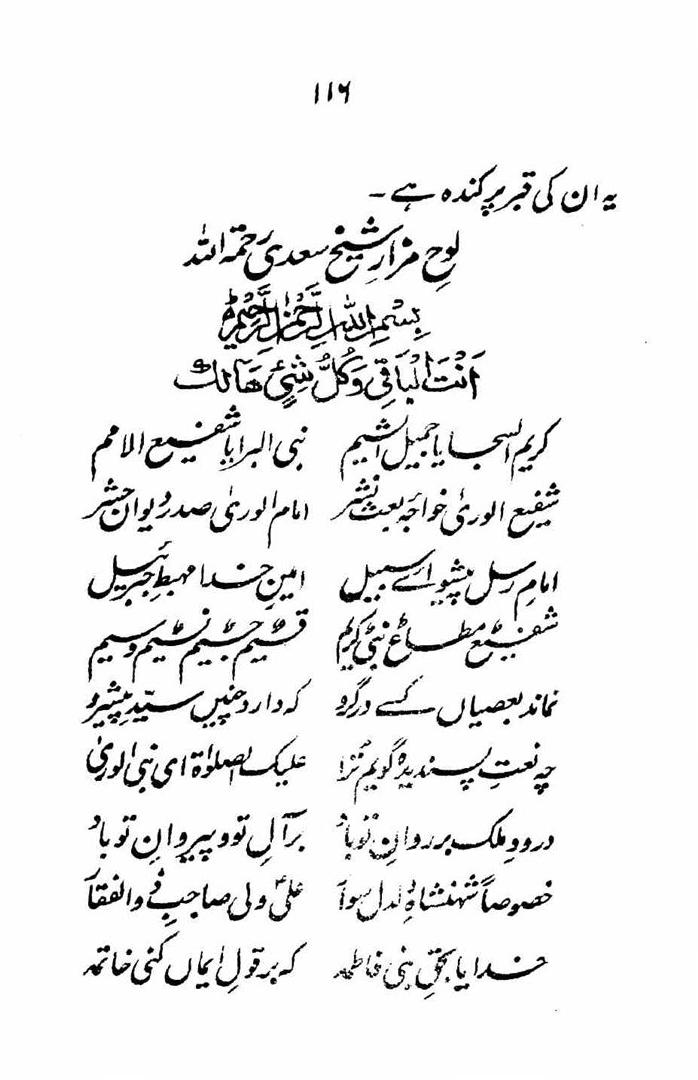 ۱۱۶
یہ ان کی قبر پر کندہ ہے ۔
لوحِ مزارِ شیخ سعدی رحمۃ اللہ
بِسْمِ اللّٰهِ الرَّحْمٰنِ الرَّحِيْمِ
اَنْتَ الْبَاقِی وَکُلُّ شَیْءٍ هَالِک
کریم السجایا جمیل الشیم نبی البرایا شفیع الامم
شفیع الوریٰ خواجہ بعث نشر امام الوریٰ صدر دیوانِ حشر
امامِ رسل پیشوائے سبیل امینِ خدا مہبطِ جبرئیل
شفیعٌ مطاعٌ نبیٌ کریم قسیمٌ جسیمٌ نسیمٌ وسیم
نماند بعصیاں کسے در گرو کہ دارد چنیں سیّد پیشرو
چہ نعتِ پسندیدہ گویم تُرا علیک الصلوٰۃ ای نبی الوریٰ
درودِ ملک بر روانِ تو باد بر آلِ تو و پیروانِ تو باد
خصوصاً شہنشاہِ دلدل سوار علیؑ ولی صاحبِ ذوالفقار
خدایا بحقِ بنی فاطمہ کہ بر قولِ ایماں کنی خاتمہ